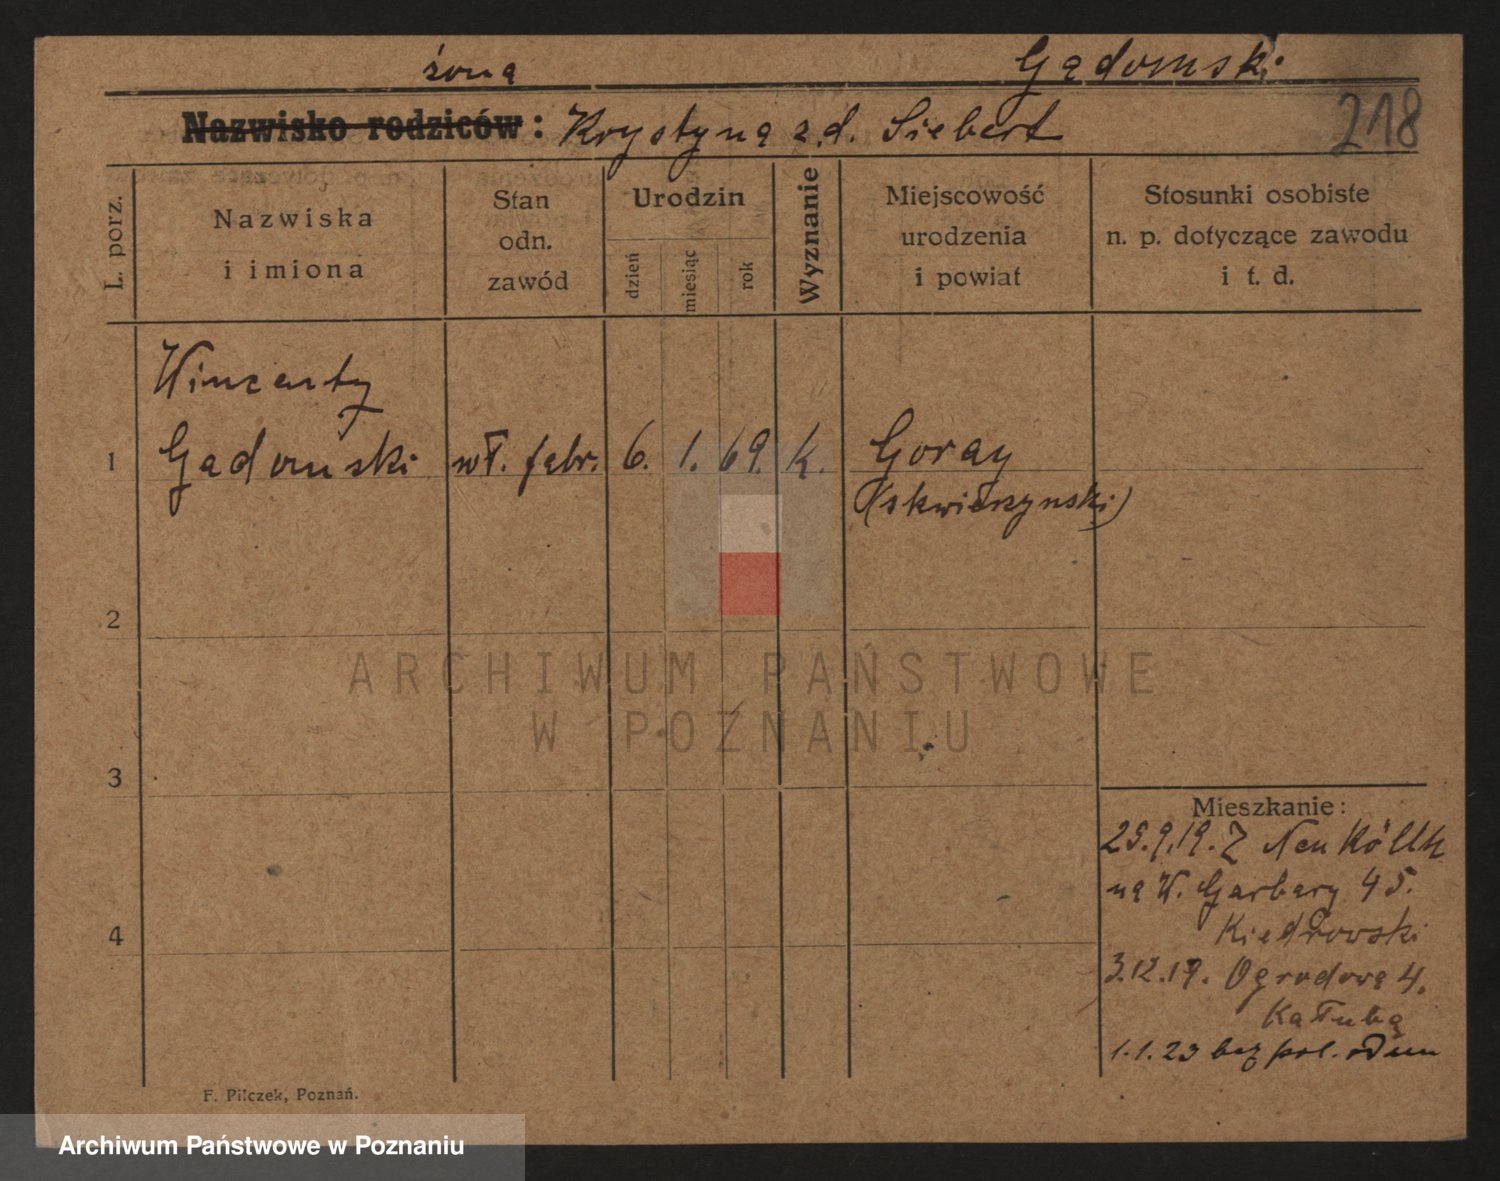 żona Gądomski
Nazwisko rodziców: Krystyna z.d. Siebert 218
L. porz.
Nazwiska
i imiona
Stan
odn.
zawód
Urodzin
dzień
miesiąc
rok
Wyznanie
Miejscowość
urodzenia
i powiat
Stosunki osobiste
n. p. dotyczące zawodu
i t. d.
Wincenty
1 Gądomski wł. fabr. 6. 1. 69. k. Goray
(skwierzynski)
2
ARCHIWUM PAŃSTWOWE
W POZNANIU
3
Mieszkanie:
25.9.19. Z Neu Kölln
na W. Garbary 45.
Kiedrowski
4
3.12.19. Ogrodowa 4.
Kałuba
1.1.23 bez pol. odm
F. Pilczek, Poznań.
Archiwum Państwowe w Poznaniu